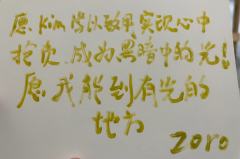 愿Kim可以改革,实现心中
抱负,成为黑暗中的光!
愿我能到有光的
地方
Zoro